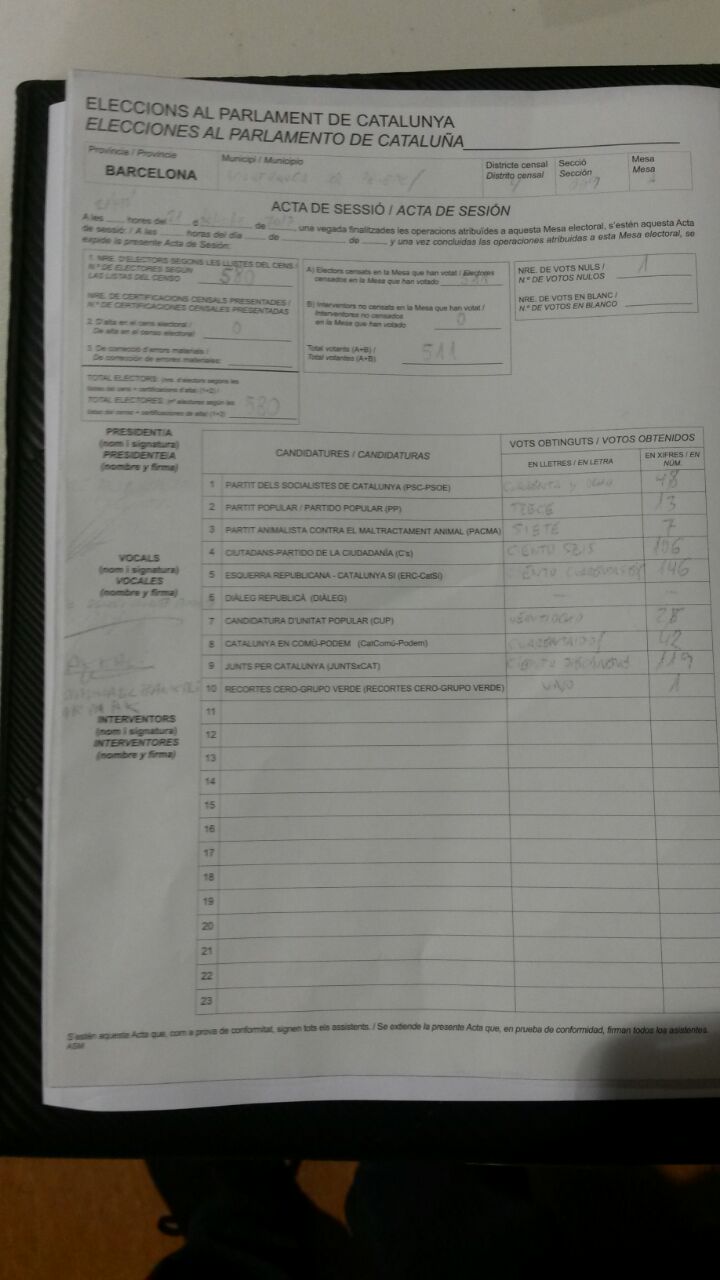 ELECCIONS AL PARLAMENT DE CATALUNYA
ELECCIONES AL PARLAMENTO DE CATALUÑA
Província / Provincia
Municipi / Municipio
Districte censal
Distrito censal
Secció
Sección
Mesa
Mesa
BARCELONA
ACTA DE SESSIÓ / ACTA DE SESIÓN
A les hores del de , una vegada finalitzades les operacions atribuïdes a aquesta Mesa electoral, s'estén aquesta Acta
de sessió: / A las horas del día de de y una vez concluidas las operaciones atribuidas a esta Mesa electoral, se
expide la presente Acta de Sesión:
1. NRE. D'ELECTORS SEGONS LES LLISTES DEL CENS /
N.º DE ELECTORES SEGÚN
LAS LISTAS DEL CENSO 580
NRE. DE CERTIFICACIONS CENSALS PRESENTADES /
N.º DE CERTIFICACIONES CENSALES PRESENTADAS
2. D'alta en el cens electoral /
De alta en el censo electoral: 0
3. De correcció d'errors materials /
De corrección de errores materiales:
TOTAL ELECTORS: (nre. d'electors segons les
llistes del cens + certificacions d'alta) (1+2) /
TOTAL ELECTORES: (nº electores según las
listas del censo + certificaciones de alta) (1+2) 580
A) Electors censats en la Mesa que han votat / Electores
censados en la Mesa que han votado
B) Interventors no censats en la Mesa que han votat /
Interventores no censados
en la Mesa que han votado 0
Total votants (A+B) /
Total votantes (A+B) 511
NRE. DE VOTS NULS /
N.º DE VOTOS NULOS 1
NRE. DE VOTS EN BLANC /
N.º DE VOTOS EN BLANCO
PRESIDENT/A
(nom i signatura)
PRESIDENTE/A
(nombre y firma)
VOCALS
(nom i signatura)
VOCALES
(nombre y firma)
INTERVENTORS
(nom i signatura)
INTERVENTORES
(nombre y firma)
CANDIDATURES / CANDIDATURAS
VOTS OBTINGUTS / VOTOS OBTENIDOS
EN LLETRES / EN LETRA
EN XIFRES / EN
NÚM.
1 PARTIT DELS SOCIALISTES DE CATALUNYA (PSC-PSOE) CUARENTA Y OCHO 48
2 PARTIT POPULAR / PARTIDO POPULAR (PP) TRECE 13
3 PARTIT ANIMALISTA CONTRA EL MALTRACTAMENT ANIMAL (PACMA) SIETE 7
4 CIUTADANS-PARTIDO DE LA CIUDADANÍA (C's) CIENTO SEIS 106
5 ESQUERRA REPUBLICANA - CATALUNYA SÍ (ERC-CatSí) CIENTO 146
6 DIÀLEG REPUBLICÀ (DIÀLEG) — -
7 CANDIDATURA D'UNITAT POPULAR (CUP) VEINTIOCHO 28
8 CATALUNYA EN COMÚ-PODEM (CatComú-Podem) 42
9 JUNTS PER CATALUNYA (JUNTSxCAT) CIENTO DIECINUEVE 119
10 RECORTES CERO-GRUPO VERDE (RECORTES CERO-GRUPO VERDE) UNO 1
11
12
13
14
15
16
17
18
19
20
21
22
23
S'estén aquesta Acta que, com a prova de conformitat, signen tots els assistents. / Se extiende la presente Acta que, en prueba de conformidad, firman todos los asistentes.
ASM